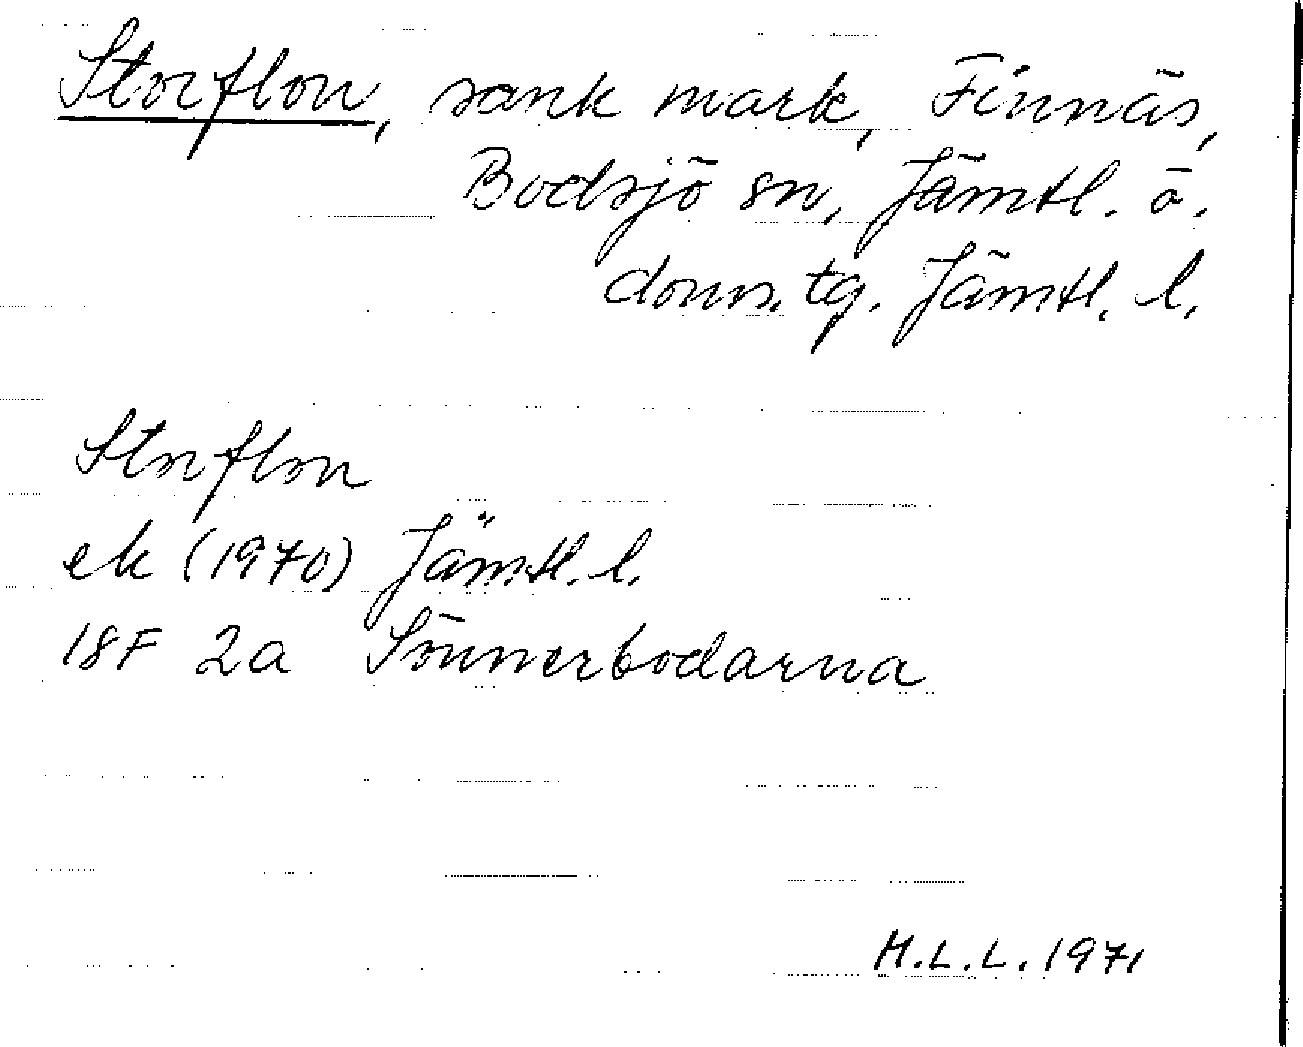 Storflon, sank mark, Finnäs,
Bodsjö sn, Jämtl. ö.
doms. tg. Jämtl. l.
Storflon
ek (1970) Jämtl. l.
18F 2a Sönnerbodarna
M.L.L. 1971